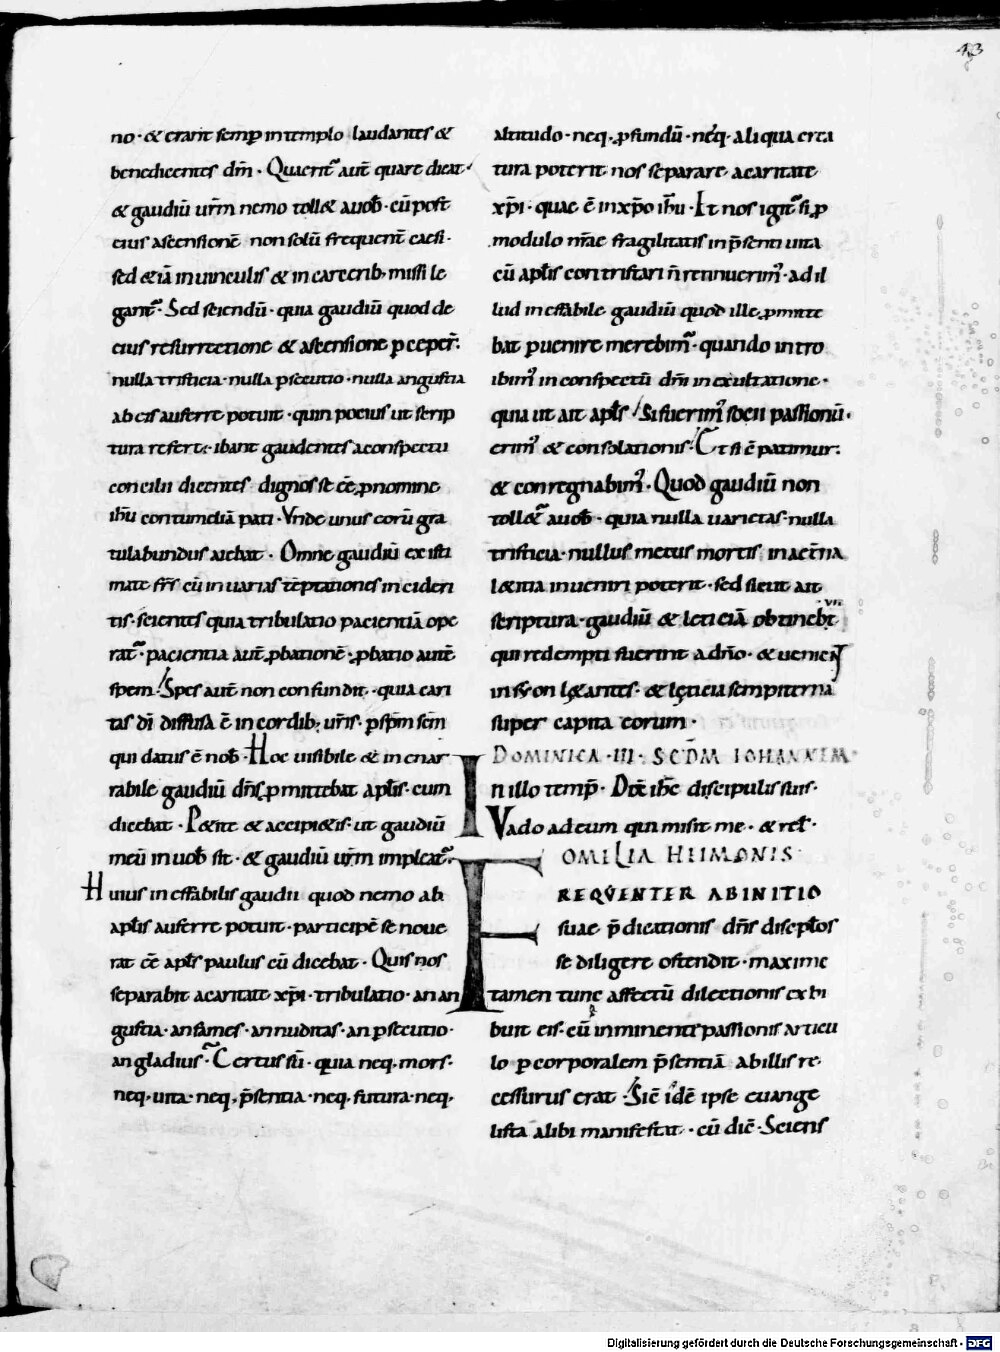 13
no · & erant semp̄ in templo laudantes &
benedicentes dm̄ · Querit᷒ aut̄ quare dicat ·
& gaudiū ur̄m nemo toll& auob̄ · cū post
eius ascensionē non solū frequent̄ caesi ·
sed &iā inuinculis & incarcerib· missi le
gant᷒ · Sed sciendū · quia gaudiū quod de
eius resurrectione & ascensione p̲ceper̄ ·
nulla tristicia · nulla p̲secutio · nulla angustia
ab eis auferre potuit · quin pocius ut scrip
tura refert · ibant gaudentes aconspectu
concilii dicentes dignos se ēe ꝓnomine
ih̄u contumeliā pati · Unde unus eorū gra
tulabundus aiebat · Omne gaudiū existi
mate fr̄s cū in uarias tēptationes incideri
tis · scientes quia tribulatio pacientiā ope
rat᷒ · pacientia aut̄ ꝓbationē · ꝓbatio autē
spem · Spes autē non confundit · quia cari
tas dī diffusa ē in cordib; ur̄is · p̲ sp̄m sc̄m
qui datus ē nob̄ · Hoc uisibile & inenar
rabile gaudiū dn̄s ꝓmittebat apl̄is · cum
dicebat · P&ite & accipi&is · ut gaudiū
meū inuob̄ sit · & gaudiū ur̄m impleat᷒ ·
Huius ineffabilis gaudii quod nemo ab
apl̄is auferre potuit · participē se noue
rat ēe apl̄s paulus cū dicebat · Quis nos
separabit acaritate xp̄i · tribulatio · an an
gustia · an fames · an nuditas · an p̲secutio ·
an gladius · Certus sū · quia neq, mors ·
neq, uita · neq, p̄sentia · neq, futura · neq,
altitudo · neq, ꝓfundū · neq, aliqua crea
tura poterit nos separare acaritate
xp̄i · quae ē in xp̄o ih̄u · It nos igit᷒ si ꝓ
modulo nr̄ae fragilitatis in p̄senti uita
cū apl̄is contristari n̄ rennuerim᷒ · ad il
lud ineffabile gaudiū quod ille ꝓmitte
bat p̲uenire merebim᷒ · quando intro
ibim᷒ inconspectū dn̄i in exultatione ·
quia ut ait apl̄s Si fuerim᷒ socii passionū ·
erim᷒ & consolationis · Et si cōpatimur ·
& conregnabim᷒ · Quod gaudiū non
toll&᷒ auob̄ · quia nulla uarietas · nulla
tristicia · nullus metus mortis in aet̄na
l&itia inueniri poterit · sed sicut ait
scriptura · gaudiū & leticiā obtinebt̄
qui redempti fuerint adn̄o · & uenient
insyon l&antes · & lęticia sempiterna
super capita eorum ·
DOMINICA · III · SC̄DM IOHANNEM ·
In illo temp̄ · Dix̄ ih̄c discipulis suis ·
Vado ad eum qui misit me · & rel̄ ·
OMILIA HEIMONIS
FREQVENTER ABINITIO
suae p̄dicationis dn̄s discpl̄os
se diligere ostendit · maxime
tamen tunc affectū dilectionis exhi
buit eis · cū inminente passionis articu
lo p̲ corporalem p̄sentiā abillis re
cessurus erat · Sic̄ idē ipse euange
lista alibi manifestat · cū dic̄ · Sciens
Digitalisierung gefördert durch die Deutsche Forschungsgemeinschaft - DFG